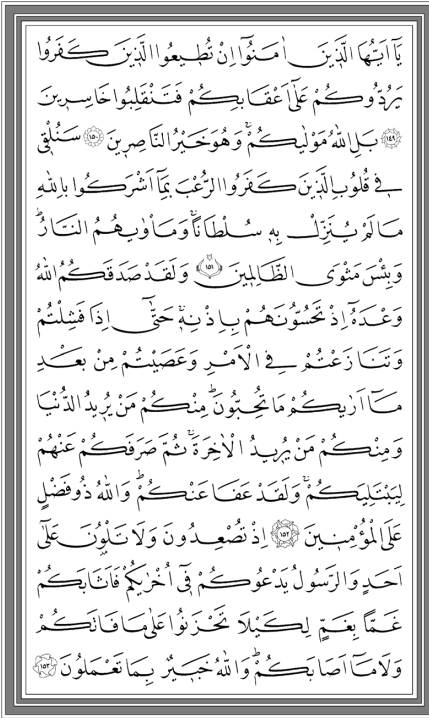 يَٓا اَيُّهَا الَّذ۪ينَ اٰمَنُٓوا اِنْ تُط۪يعُوا الَّذ۪ينَ كَفَرُوا
يَرُدُّوكُمْ عَلٰٓى اَعْقَابِكُمْ فَتَنْقَلِبُوا خَاسِر۪ينَ
﴿١٤٩﴾ بَلِ اللّٰهُ مَوْلٰيكُمْۚ وَهُوَ خَيْرُ النَّاصِر۪ينَ ﴿١٥٠﴾ سَنُلْق۪ي
ف۪ي قُلُوبِ الَّذ۪ينَ كَفَرُوا الرُّعْبَ بِمَٓا اَشْرَكُوا بِاللّٰهِ
مَا لَمْ يُنَزِّلْ بِه۪ سُلْطَانًاۚ وَمَأْوٰيهُمُ النَّارُۜ
وَبِئْسَ مَثْوَى الظَّالِم۪ينَ ﴿١٥١﴾ وَلَقَدْ صَدَقَكُمُ اللّٰهُ
وَعْدَهُٓ اِذْ تَحُسُّونَهُمْ بِاِذْنِه۪ۚ حَتّٰٓى اِذَا فَشِلْتُمْ
وَتَنَازَعْتُمْ فِي الْاَمْرِ وَعَصَيْتُمْ مِنْ بَعْدِ
مَٓا اَرٰيكُمْ مَا تُحِبُّونَۜ مِنْكُمْ مَنْ يُر۪يدُ الدُّنْيَا
وَمِنْكُمْ مَنْ يُر۪يدُ الْاٰخِرَةَۚ ثُمَّ صَرَفَكُمْ عَنْهُمْ
لِيَبْتَلِيَكُمْۚ وَلَقَدْ عَفَا عَنْكُمْۜ وَاللّٰهُ ذُو فَضْلٍ
عَلَى الْمُؤْمِن۪ينَ ﴿١٥٢﴾ اِذْ تُصْعِدُونَ وَلَا تَلْوُ۫نَ عَلٰٓى
اَحَدٍ وَالرَّسُولُ يَدْعُوكُمْ ف۪ٓي اُخْرٰيكُمْ فَاَثَابَكُمْ
غَمًّا بِغَمٍّ لِكَيْلَا تَحْزَنُوا عَلٰى مَا فَاتَكُمْ
وَلَا مَٓا اَصَابَكُمْۜ وَاللّٰهُ خَب۪يرٌ بِمَا تَعْمَلُونَ ﴿١٥٣﴾